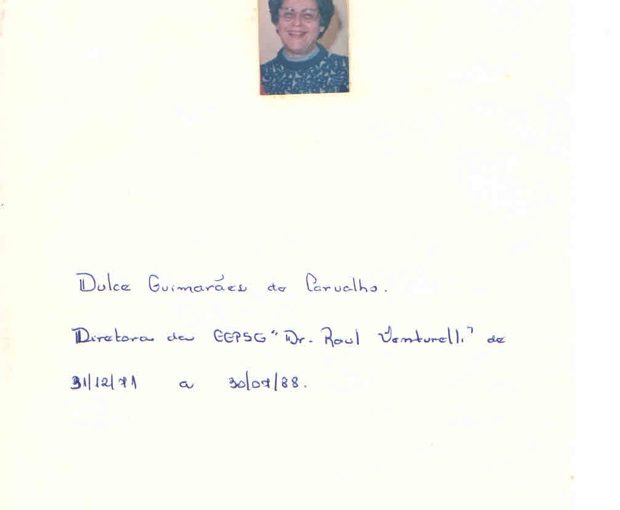 Dulce Guimarães de Carvalho.
Diretora da EEPSG "Dr. Raul Venturelli" de
31/12/71 a 30/07/88.